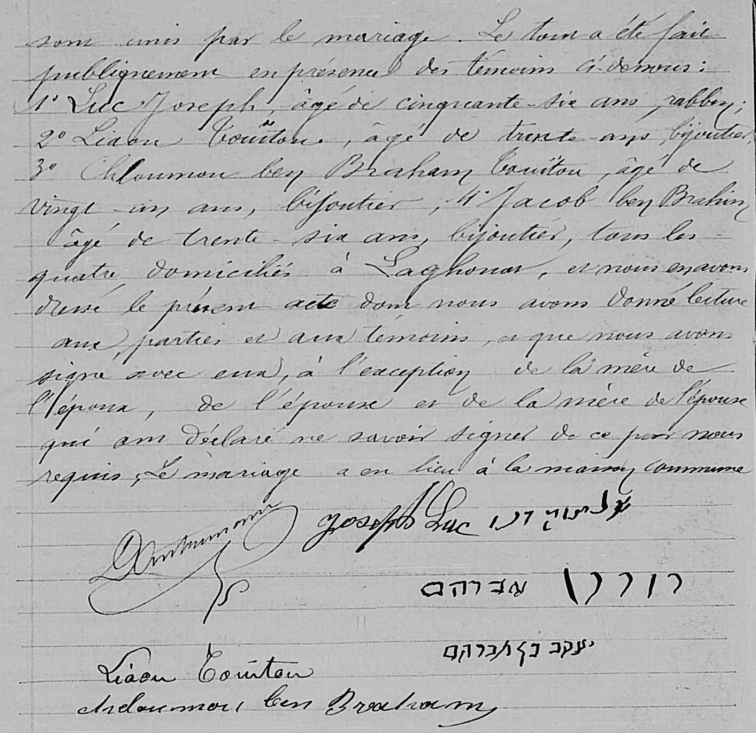 sont unis par le mariage. Le tout a été fait
publiquement en présence des témoins ci-dessous:
1° Luc Joseph, âgé de cinquante-six ans, rabbin;
2° Liaou Touïtou, âgé de trente ans, bijoutier,
3° Chloumou ben Braham Touïtou, âgé de
vingt-un ans, bijoutier, 4° Jacob ben Brahim
âgé de trente-six ans, bijoutier, tous les
quatre domiciliés à Laghouat, et nous en avons
dressé le présent acte dont nous avons donné lecture
aux parties et aux témoins, et que nous avons
signé avec eux, à l'exception de la mère de
l'époux, de l'épouse et de la mère de l'épouse
qui ont déclaré ne savoir signer de ce par nous
requis; Le mariage a eu lieu à la maison commune
Joseph Luc
אברהם
יעקב בן אברהם
Liaou Touitou
chloumou ben Braham